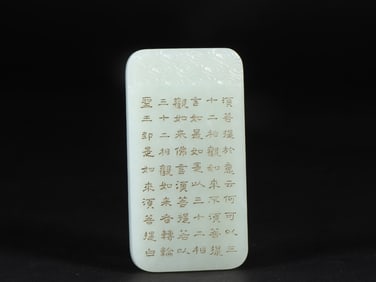 須菩提於意云何可以三
十二相觀如來不須菩提
言如是如是以三十二相
觀如來佛言須菩提若以
三十二相觀如來者轉輪
聖王即是如來須菩提白